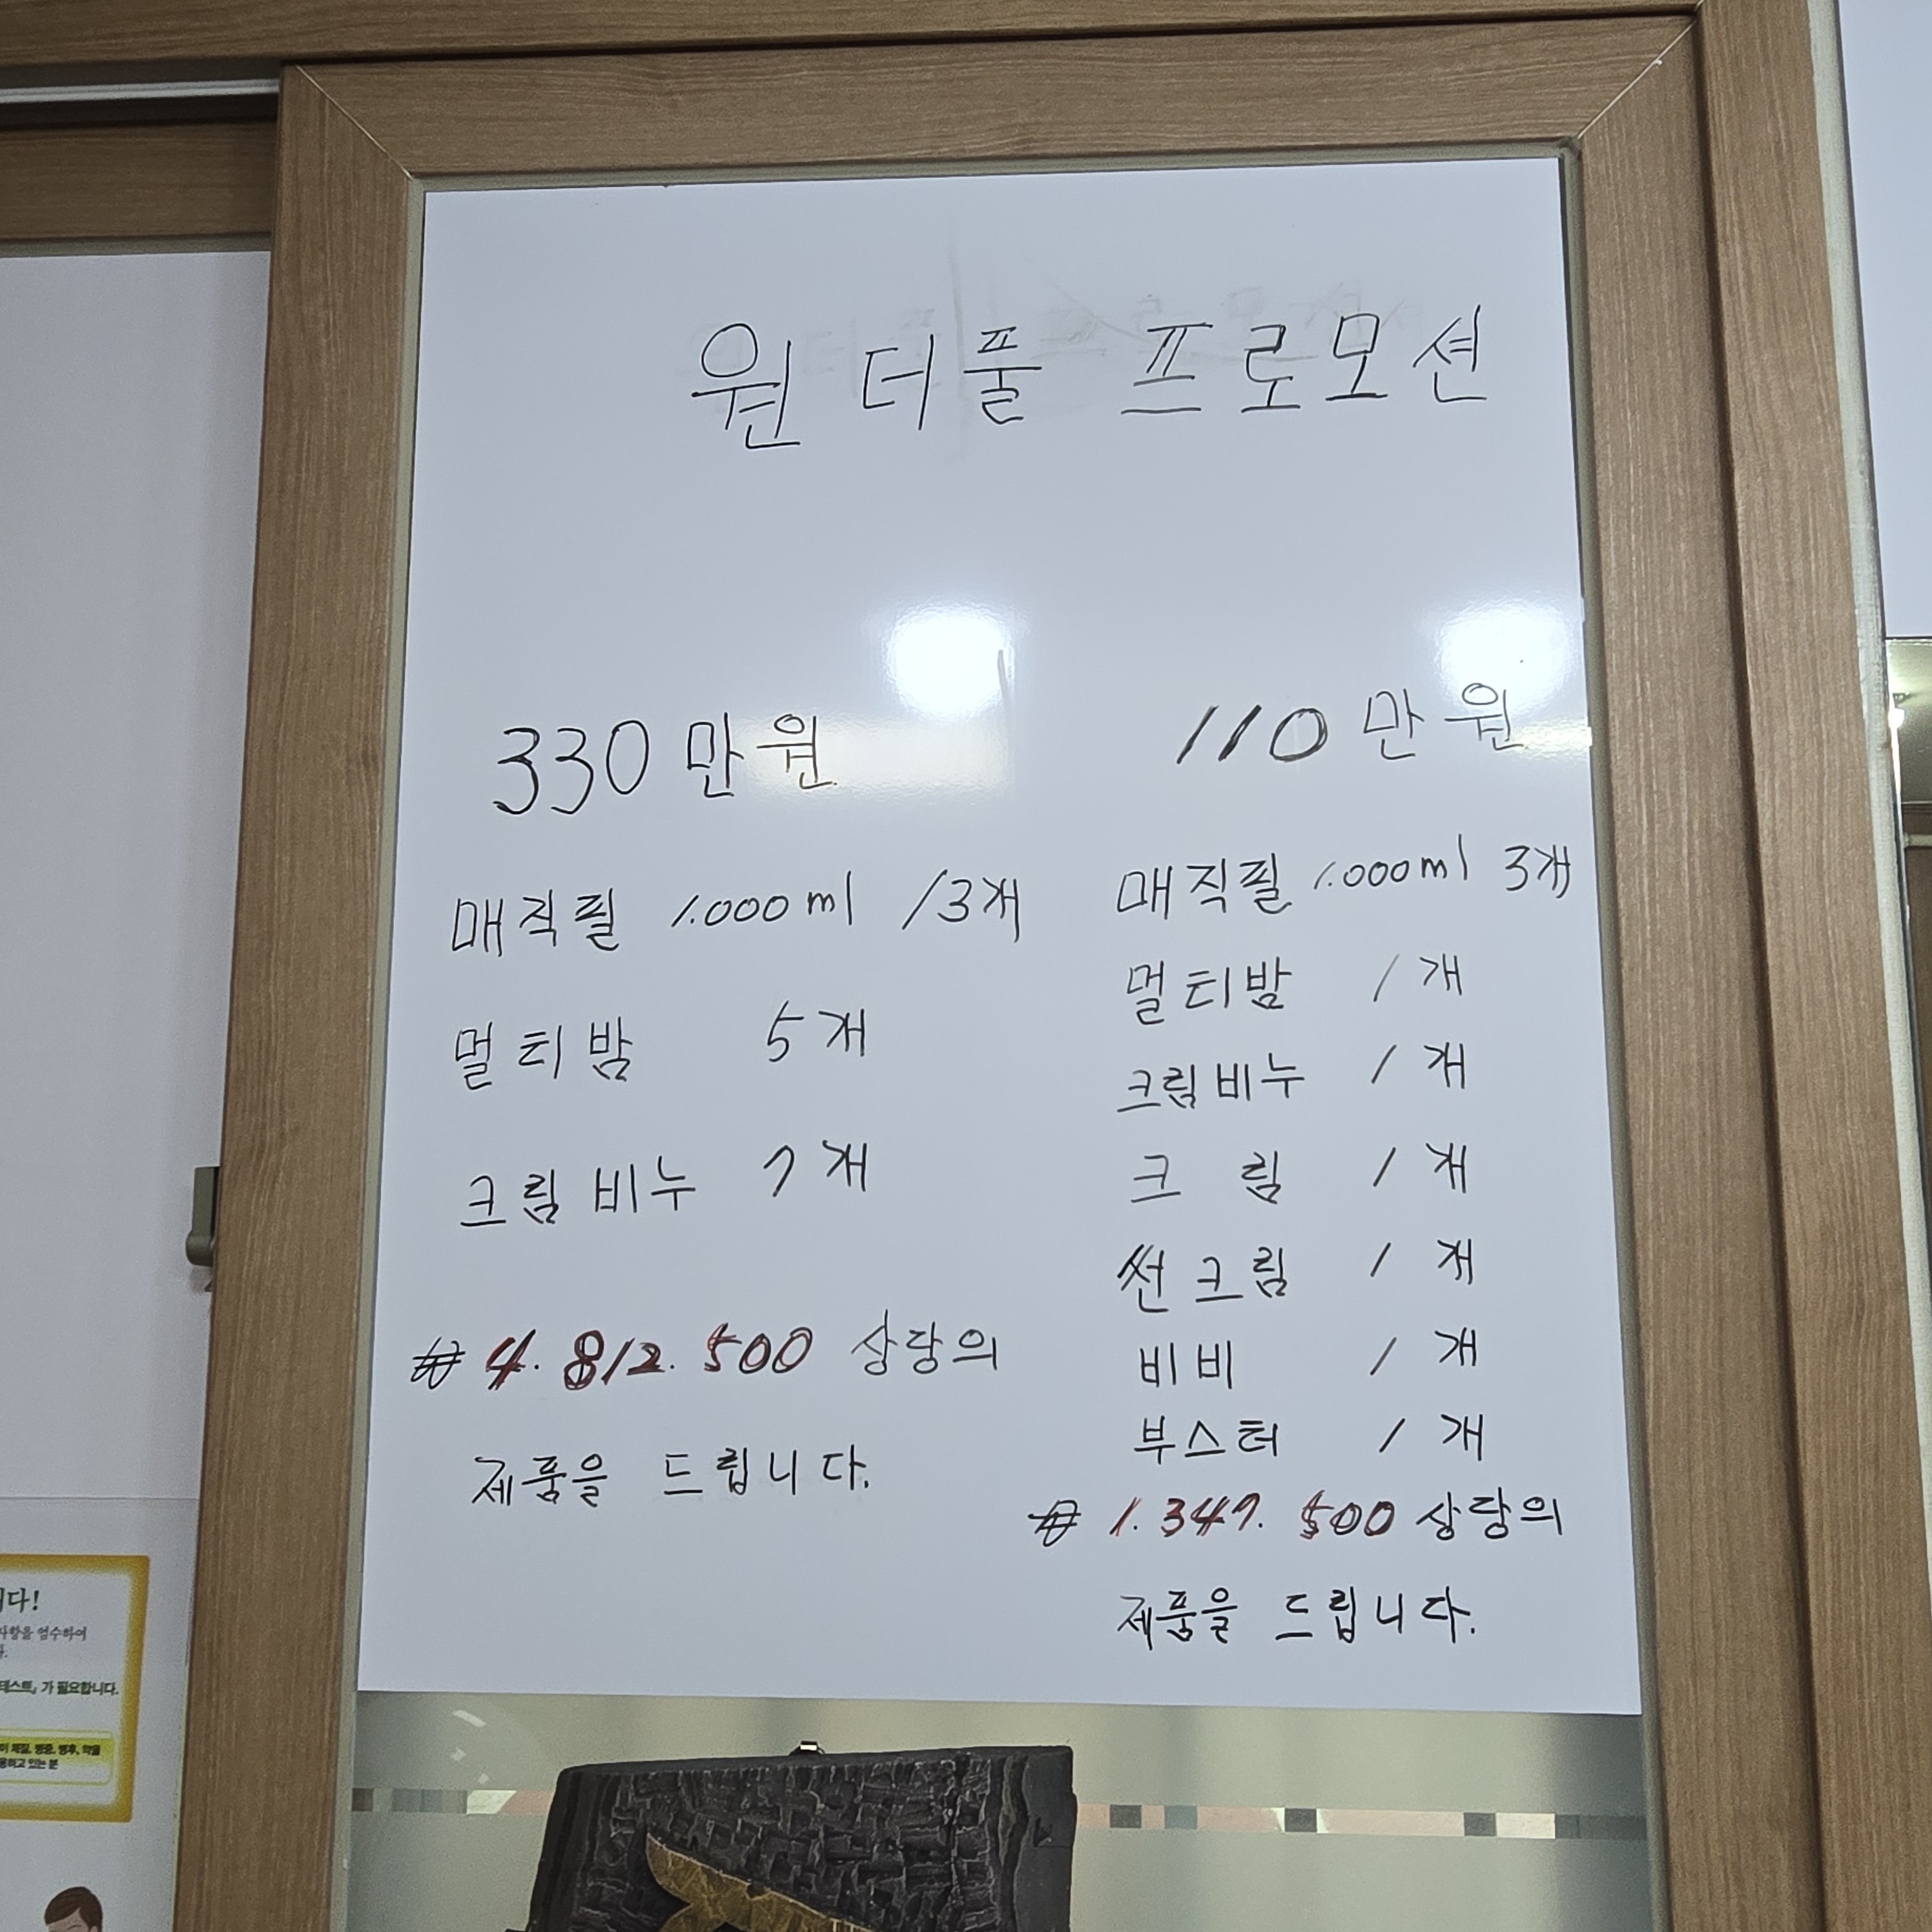 원더풀 프로모션
330만원
매직필 1.000ml 13개
멀티밤 5개
크림비누 7개
₩ 4.812.500 상당의
제품을 드립니다.
110만원
매직필 1.000ml 3개
멀티밤 1개
크림비누 1개
크림 1개
썬크림 1개
비비 1개
부스터 1개
₩ 1.347.500 상당의
제품을 드립니다.
다!
사항을 엄수하여
다.
테스트」가 필요합니다.